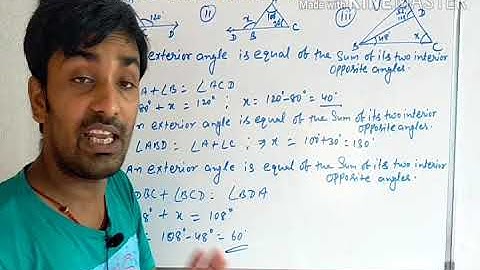 Made with KINEMASTER
120°
(ii)
x
B
C
(iii)
D
x
B
48°
C
exterior angle is equal of the Sum of its two interior
opposite angles.
A + ∠B = ∠ACD
80° + x = 120° ; x = 120° - 80° = 40°
An exterior angle is equal of the Sum of its two interior
opposite angles.
∠ABD = ∠A + ∠C ; ⇒ x = 100° + 30° = 130°
An exterior angle is equal of the Sum of its two interior
opposite angles.
DBC + ∠BCD = ∠BDA
8° + x = 108°
= 108° - 48° = 60°